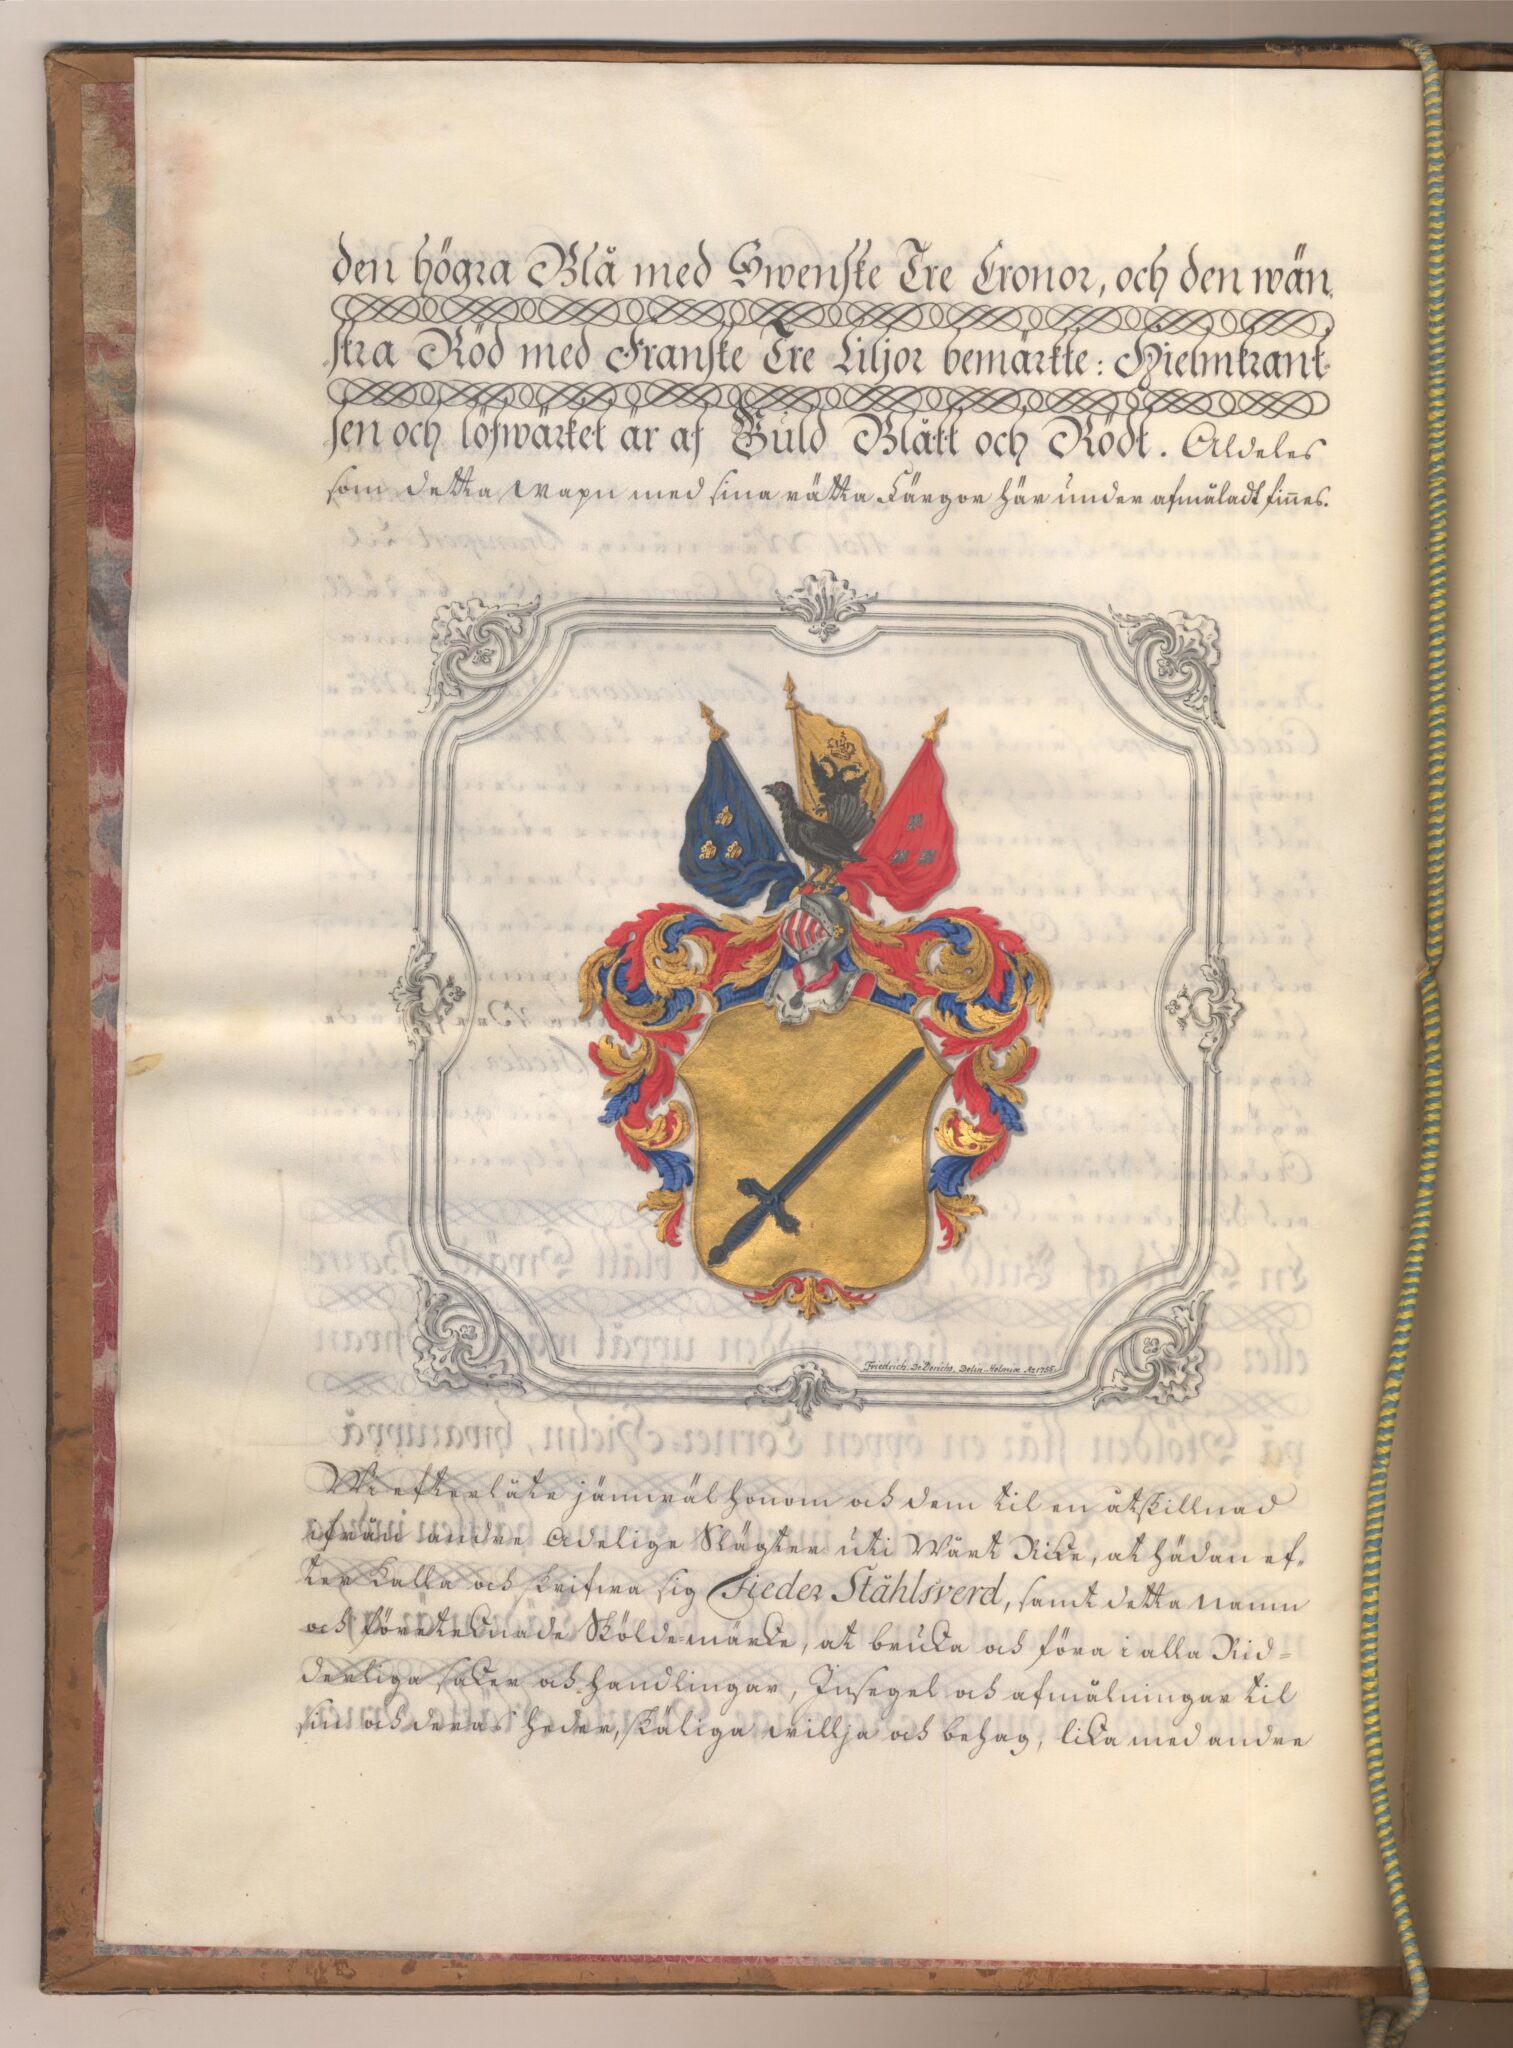 den högra Blå med Swenske Tre Cronor, och den wän-
stra Röd med Franske Tre Liljor bemärkte: Hielmkrant-
sen och löfwärket är af Guld Blått och Rödt. Aldeles
som detta wapn med sina rätta Färgor här under afmåladt finnes.
Friedrich. De Derichs. Delin. Holmiæ Ao 1755.
Wi efterlåte jämwäl honom och dem til en åtskillnad
ifrån andre Adelige Slägter uti Wårt Ricke, at hädan ef-
ter kalla och skrifwa sig Tieder Ståhlsverd, samt detta namn
och företeknade Sköldemärcke, at bruka och föra i alla Rid-
derliga saker och handlingar, Insegel och afmålningar til
sin och deras heder, skäliga willja och behag, lika med andre